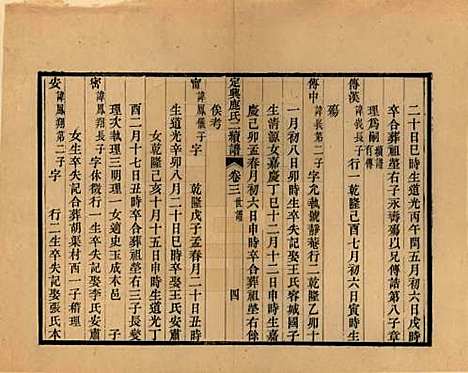 二十日巳時生道光丙午閏五月初六日戌時
卒合葬祖塋右子永壽殤以兄傳誥第八子章
理爲嗣續譜有傳
傳漢諱長長子行一乾隆己酉七月初六日寅時生
殤
傳中諱長第二子字允執號靜菴行二乾隆乙卯十
一月初八日卯時生卒失記娶王氏容城國子
生清淑女嘉慶丁巳十二月十二日申時生嘉
慶己卯孟春月初六日申時卒合葬祖塋右餘
俟考
定興鹿氏二續譜 卷三 世譜 四
甯諱鳳儀子字 乾隆戊子孟春月二十日丑時
生道光辛卯八月二十日巳時卒娶王氏安肅
女乾隆己亥十月十五日申時生道光丁
酉二月十七日丑時卒合葬祖塋右三子長燮
理次執理三明理一女適史玉成本邑 子
密諱鳳翔長子字休微行一生卒失記娶李氏安肅
女生卒失記合葬胡葉村西一子精理
安諱鳳翔第二子字 行二生卒失記娶張氏本